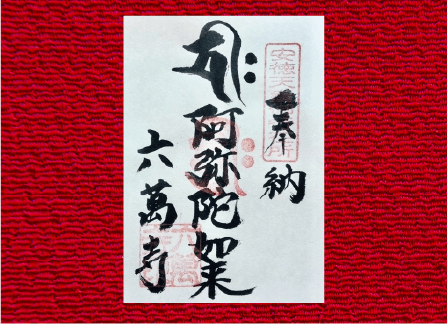 奉納
安徳天
阿弥陀如来
六萬寺